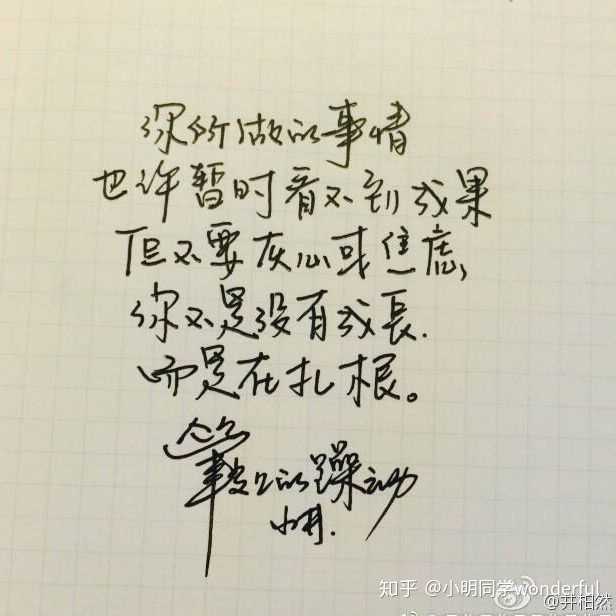 你所做的事情
也许暂时看不到成果
但不要灰心或焦虑,
你不是没有成長.
而是在扎根。
的躁动
知乎 @小明同学wonderful
@井柏然